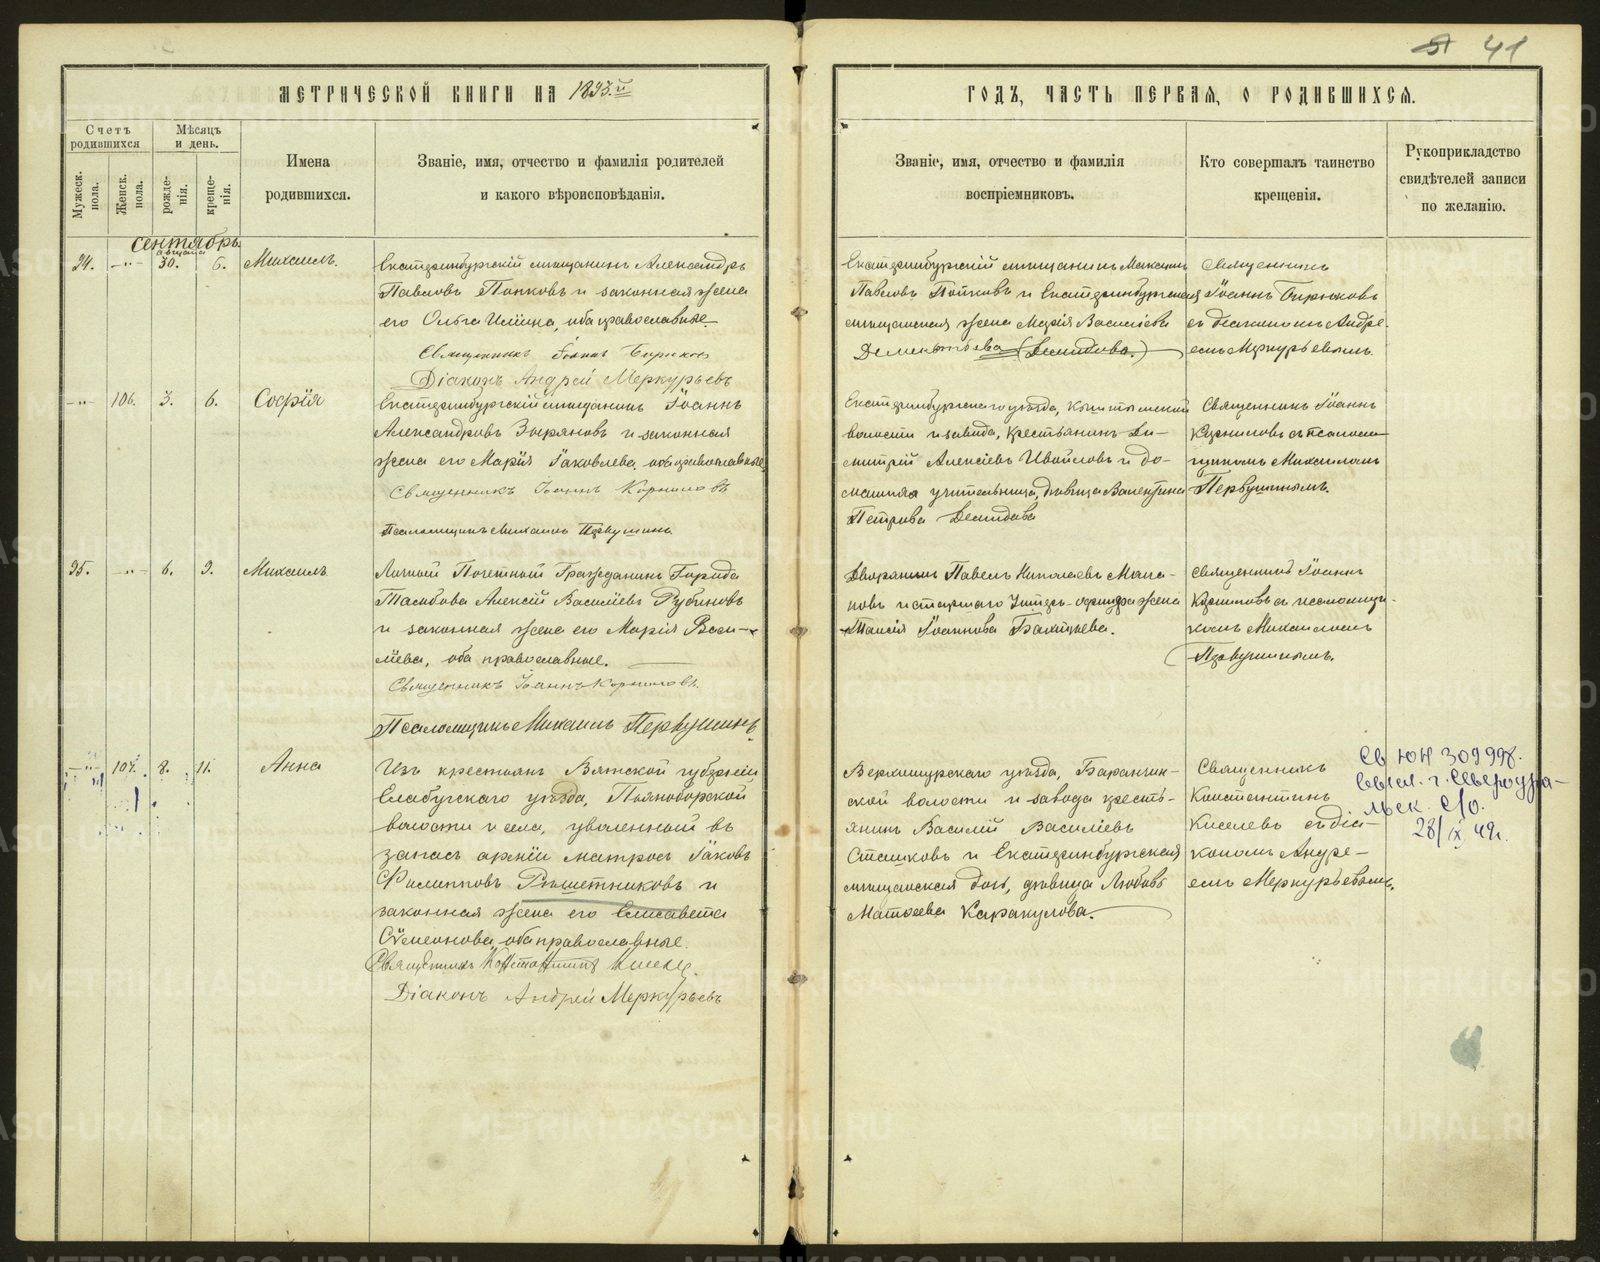 41
МЕТРИЧЕСКОЙ КНИГИ НА 1893.й
ГОДЪ, ЧАСТЬ ПЕРВАЯ, О РОДИВШИХСЯ.
Счетъ родившихся
Мѣсяцъ и день.
Мужеск. пола.
Женск. пола.
рожде-нія.
креще-нія.
Имена
родившихся.
Званіе, имя, отчество и фамилія родителей
и какого вѣроисповѣданія.
Званіе, имя, отчество и фамилія
воспріемниковъ.
Кто совершалъ таинство
крещенія.
Рукоприкладство
свидѣтелей записи
по желанію.
Сентябрь
94. -"- августа 30. 6. Михаилъ.
Екатеринбургскій мѣщанинъ Александръ
Павловъ Попковъ и законная жена
его Ольга Ильина, оба православные.
Священникъ Іоаннъ Бирюковъ
Діаконъ Андрей Меркурьевъ
Екатеринбургскій мѣщанинъ Максимъ
Павловъ Попковъ и Екатеринбургская
мѣщанская жена Марія Василіева
Дементьева (Демидова.)
Священникъ
Іоаннъ Бирюковъ
съ діакономъ Андре-
емъ Меркурьевымъ.
-"- 106. 3. 6. Софія
Екатеринбургскій мѣщанинъ Іоаннъ
Александровъ Зыряновъ и законная
жена его Марія Іаковлева, оба православные
Священникъ Іоаннъ Корниловъ
Псаломщикъ Михаилъ Первушинъ.
Екатеринбургскаго уѣзда, Кыштымской
волости и завода, крестьянинъ Ди-
митрій Алексіевъ Ивойловъ и до-
машняя учительница, дѣвица Валентина
Петрова Демидова
Священникъ Іоаннъ
Корниловъ съ псалом-
щикомъ Михаиломъ
Первушинымъ.
95. -"- 6. 9. Михаилъ
Личный Почетный Гражданинъ Города
Тамбова Алексій Василіевъ Рубиновъ
и законная жена его Марія Васи-
ліева, оба православные.
Священникъ Іоаннъ Корниловъ.
Псаломщикъ Михаилъ Первушинъ.
Дворянинъ Павелъ Николаевъ Мана-
ковъ и старшаго Унтеръ-офицера жена
Таисія Іоаннова Бахтіева.
Священникъ Іоаннъ
Корниловъ съ псаломщи-
комъ Михаиломъ
Первушинымъ.
-"- 107. 8. 11. Анна
Изъ крестьянъ Вятской губерніи
Елабугскаго уѣзда, Пьяноборской
волости и села, уволенный въ
запасъ арміи матросъ Іаковъ
Филипповъ Рѣшетниковъ и
законная жена его Елисавета
Сѵмеонова, оба православные.
Священникъ Константинъ Киселе
Діаконъ Андрей Меркурьевъ
Верхотурскаго уѣзда, Баранчин-
ской волости и завода кресть-
янинъ Василій Василіевъ
Сташковъ и Екатеринбургская
мѣщанская дочь, дѣвица Любовь
Матѳеева Каракулова.
Священникъ
Константинъ
Киселевъ съ діа-
кономъ Андре-
емъ Меркурьевымъ.
Св ЮН 309998.
выдл. г. Североура-
льск С/о.
28/IX 49г.